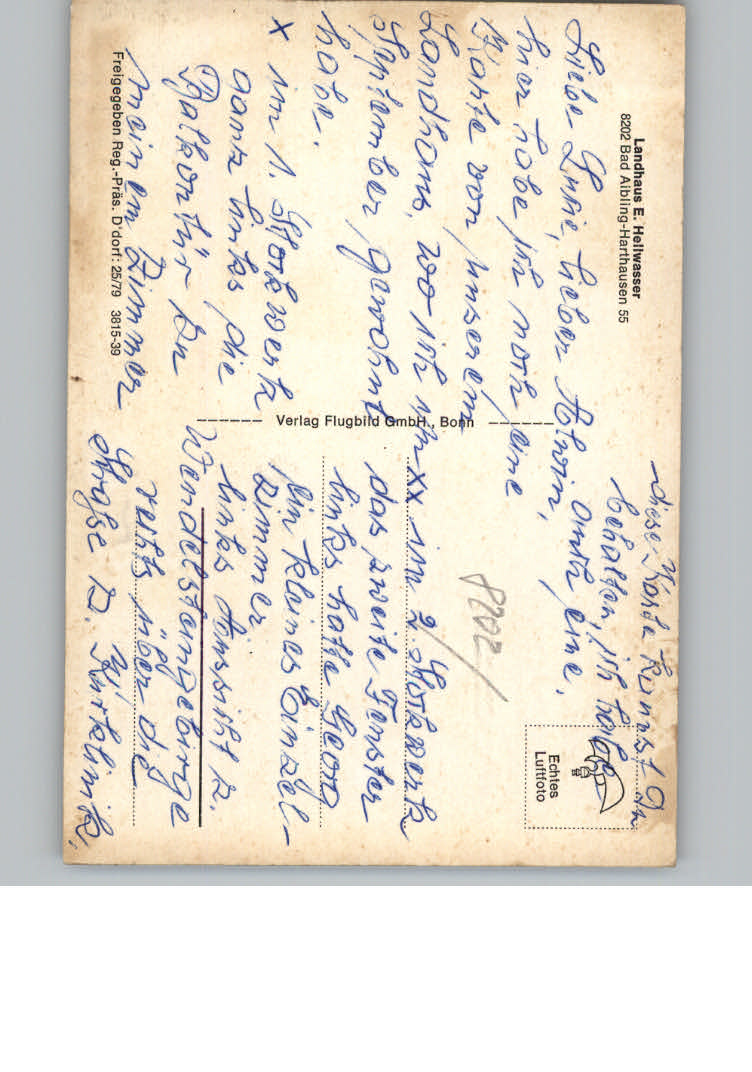 Landhaus E. Hellwasser
8202 Bad Aibling-Harthausen 55
Liebe Luise, lieber Alwin,
hier habe ich noch eine
Karte von unserem
Landhaus, wo ich im
September gewohnt
habe.
x im 1. Stockwerk
ganz links die
Balkontür zu
meinem Zimmer
Freigegeben Reg.-Präs. D'dorf: 25/79 3815-39
Verlag Flugbild GmbH., Bonn
diese Karte kannst Du
behalten, ich habe
auch eine.
Echtes
Luftfoto
8202
xx im 2. Stockwerk
das zweite Fenster
links hatte Georg
ein kleines Einzel-
zimmer
links Aussicht z.
Wendelsteingebirge
rechts über die
Straße z. Kurklinik.